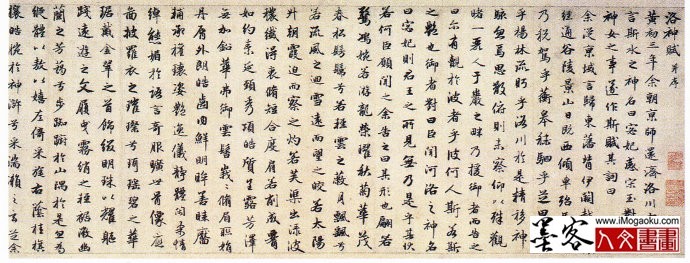 洛神賦 并序
黃初三年余朝京師還濟洛川
言斯水之神名曰宓妃感宋玉對
神女之事遂作斯賦其詞曰
余從京域言歸東藩背伊闕
經通谷陵景山日既西傾車殆
乃稅駕乎蘅皋秣駟乎芝田
乎楊林流眄乎洛川於是精移神
駭忽焉思散俯則未察仰以殊觀
睹一麗人于巖之畔乃援御者而告之
曰尒有覿於彼者乎彼何人斯若斯
之豔也御者對曰臣聞河洛之神名
曰宓妃則君王之所見無乃是乎其狀
若何臣願聞之余告之曰其形也翩若
驚鴻婉若游龍榮曜秋菊華茂
春松髣髴兮若輕雲之蔽月飄飄兮
若流風之迴雪遠而望之皎若太陽
升朝霞迫而察之灼若芙蕖出淥波
穠纖得衷脩短合度肩若削成腰
如約素延頸秀項皓質呈露芳澤
無加鉛華弗御雲髻峩峩脩眉聯娟
丹脣外朗皓齒內鮮明眸善睞靨
輔承權瓌姿艷逸儀靜體閑柔情
綽態媚於語言奇服曠世骨像應
圖披羅衣之璀璨兮珥瑤碧之華
琚戴金翠之首飾綴明珠以耀軀
踐遠遊之文履曳霧綃之輕裾微幽
蘭之芳藹兮步踟躕於山隅於是忽焉
縱體以敖以嬉左倚采旄右蔭桂旗
攘皓腕於神滸兮采湍瀨之玄芝余
www.iMogaoku.com
墨客人文書畫